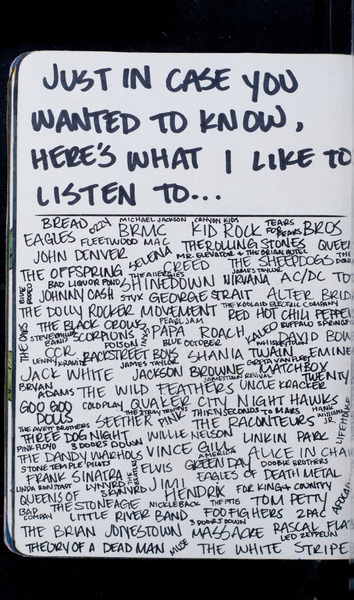 JUST IN CASE YOU
WANTED TO KNOW,
HERE'S WHAT I LIKE TO
LISTEN TO...
BREAD OZZY MICHAEL JACKSON CANYON KIDS TEARS FOR FEARS
EAGLES FLEETWOOD MAC BRMC KID ROCK BROS
JOHN DENVER SELENA THE ROLLING STONES QUEEN
MR. ELEVATOR & THE BRAIN HOTEL
THE OFFSPRING CREED THE SHEEPDOGS
BAD LIQUOR POND SHINEDOWN JAMES TAYLOR NIRVANA AC/DC
JOHNNY CASH STYX GEORGE STRAIT ALTER BRID
THE DOLLY ROCKER MOVEMENT RED HOT CHILI PEPPE
THE BLACK CROWS PEARL JAM KALEO BUFFALO SPRINGF
SCORPIONS POISON PAPA ROACH DAVID BOW
CCR BLUE OCTOBER
LENNY KRAVITZ BACKSTREET BOYS SHANIA TWAIN EMINE
JAMES TAYLOR GRETA VAN FLEET
JACK WHITE JACKSON BROWNE MATCHBOX
BRYAN ADAMS THE WILD FEATHERS UNCLE KRACKER TWENTY
GOO GOO DOLLS COLDPLAY QUAKER CITY NIGHT HAWKS
THE AVETT BROTHERS SEETHER PINK THIRTY SECONDS TO MARS HANK WILLIAMS JR
THE RACONTEURS LIFEHOUSE
THREE DOG NIGHT WILLIE NELSON LINKIN PARK
PINK FLOYD 3 DOORS DOWN
THE DANDY WARHOLS VINCE GILL AMERICA ALICE IN CHA
STONE TEMPLE PILOTS ELVIS GREEN DAY DOOBIE BROTHERS
FRANK SINATRA EAGLES OF DEATH METAL
LINDA RONSTADT LYNYRD SKYNYRD JIMI HENDRIX FOR KING & COUNTRY
QUEENS OF THE STONE AGE NICKLEBACK THE 1975 TOM PETTY
BAD COMPANY LITTLE RIVER BAND FOO FIGHTERS 2PAC
3 DOORS DOWN
THE BRIAN JONESTOWN MASSACRE RASCAL FLA
LED ZEPPELIN
THEORY OF A DEAD MAN MUSE THE WHITE STRIPE